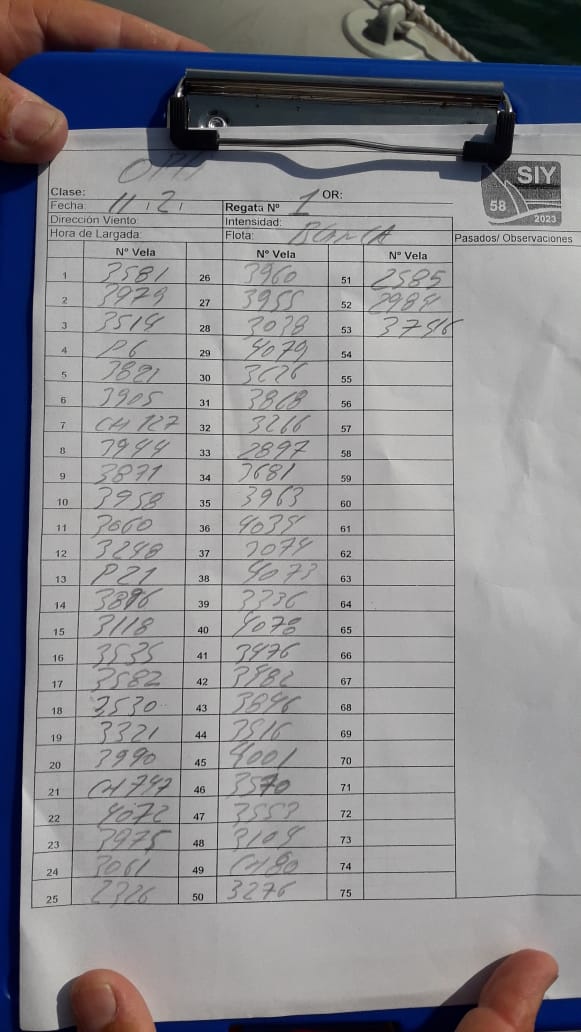 OPTI
SIY
58
2023
Clase:
Fecha: 11 / 2 / Regata Nº 1 OR:
Dirección Viento: Intensidad:
Hora de Largada: Flota: BLANCA Pasados/ Observaciones
Nº Vela Nº Vela Nº Vela
1 3581 26 3960 51 2585
2 3979 27 3955 52 2984
3 3514 28 3038 53 3746
4 P6 29 4079 54
5 3821 30 3626 55
6 3905 31 3868 56
7 CH 127 32 3266 57
8 3944 33 2897 58
9 3871 34 3681 59
10 3958 35 3963 60
11 3660 36 4034 61
12 3248 37 62
13 P21 38 4073 63
14 3896 39 3336 64
15 3118 40 4078 65
16 3535 41 3476 66
17 3582 42 3482 67
18 3530 43 3846 68
19 3321 44 3516 69
20 3990 45 4001 70
21 CH 747 46 3570 71
22 4072 47 3553 72
23 3975 48 3104 73
24 3061 49 CH 80 74
25 2326 50 3276 75